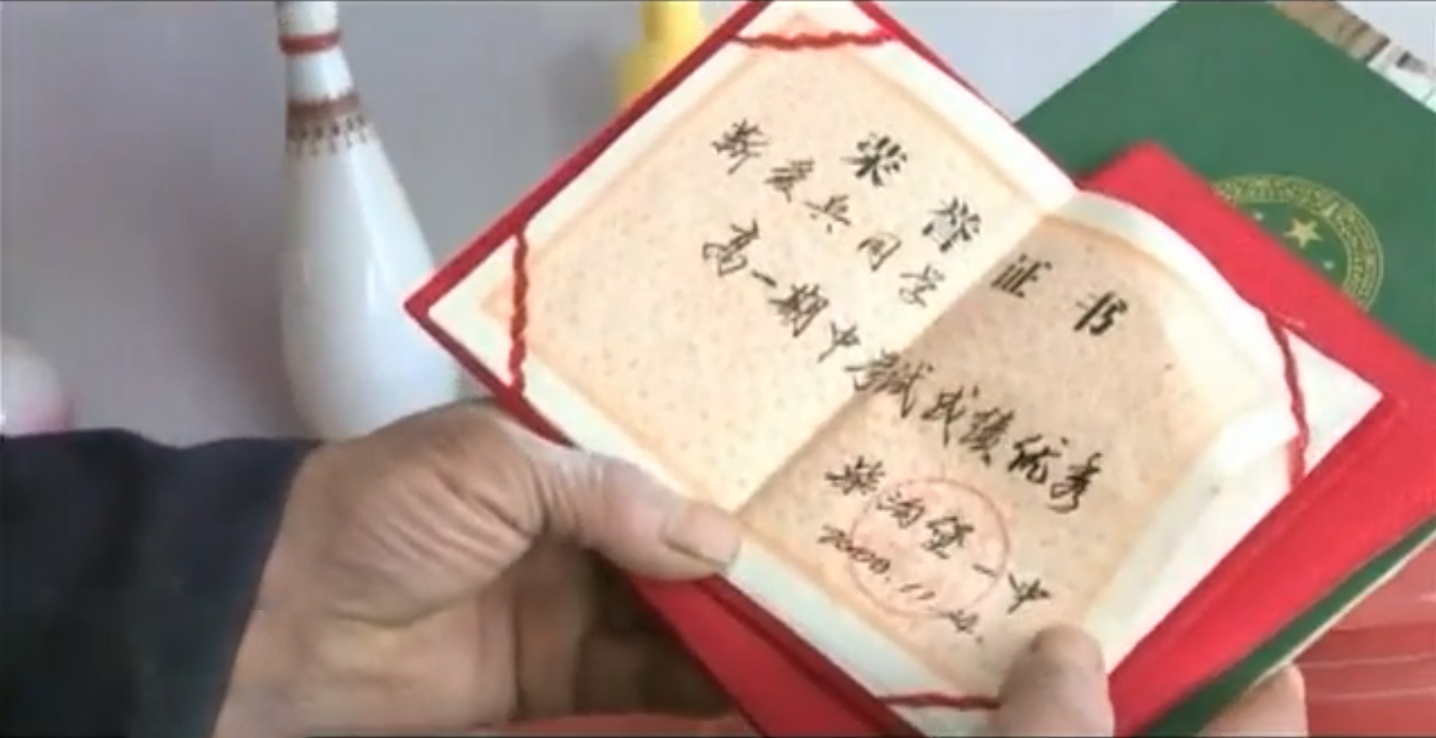 荣誉证书
靳爱兵同学
高一期中考试成绩优秀
柴沟堡一中
2000.11.24.